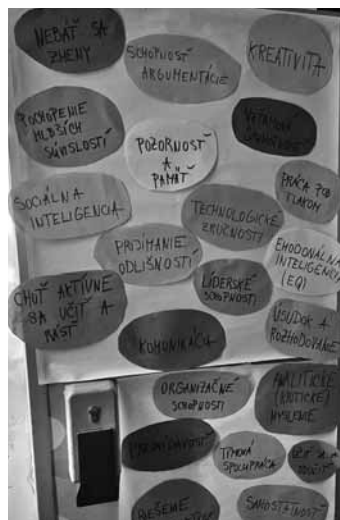 NEBÁŤ SA
ZMENY
SCHOPNOSŤ
ARGUMENTÁCIE
KREATIVITA
POCHOPENIE
HLBŠÍCH
SÚVISLOSTÍ
POZORNOSŤ
A
PAMÄŤ
SOCIÁLNA
INTELIGENCIA
PRÁCA POD
TLAKOM
TECHNOLOGICKÉ
ZRUČNOSTI
PRIJÍMANIE
ODLIŠNOSTI
EMOCIONÁLNA
INTELIGENCIA
(EQ)
LÍDERSKÉ
SCHOPNOSTI
CHUŤ AKTÍVNE
SA UČIŤ A
RÁSŤ
ÚSUDOK A
ROZHODOVANIE
KOMUNIKÁCIA
ORGANIZAČNÉ
SCHOPNOSTI
ANALYTICKÉ
(KRITICKÉ)
MYSLENIE
TÍMOVÁ
SPOLUPRÁCA
RIEŠENIE
SAMOSTATNOSŤ